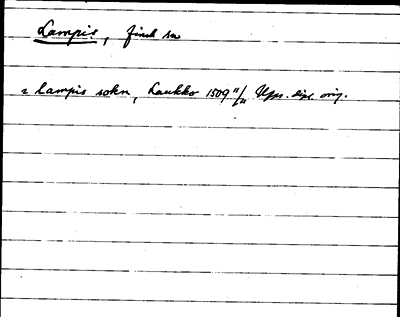 Lampis, finsk sn
i lampis sokn, Laukko 1509 11/11 Ups. dipl. orig.